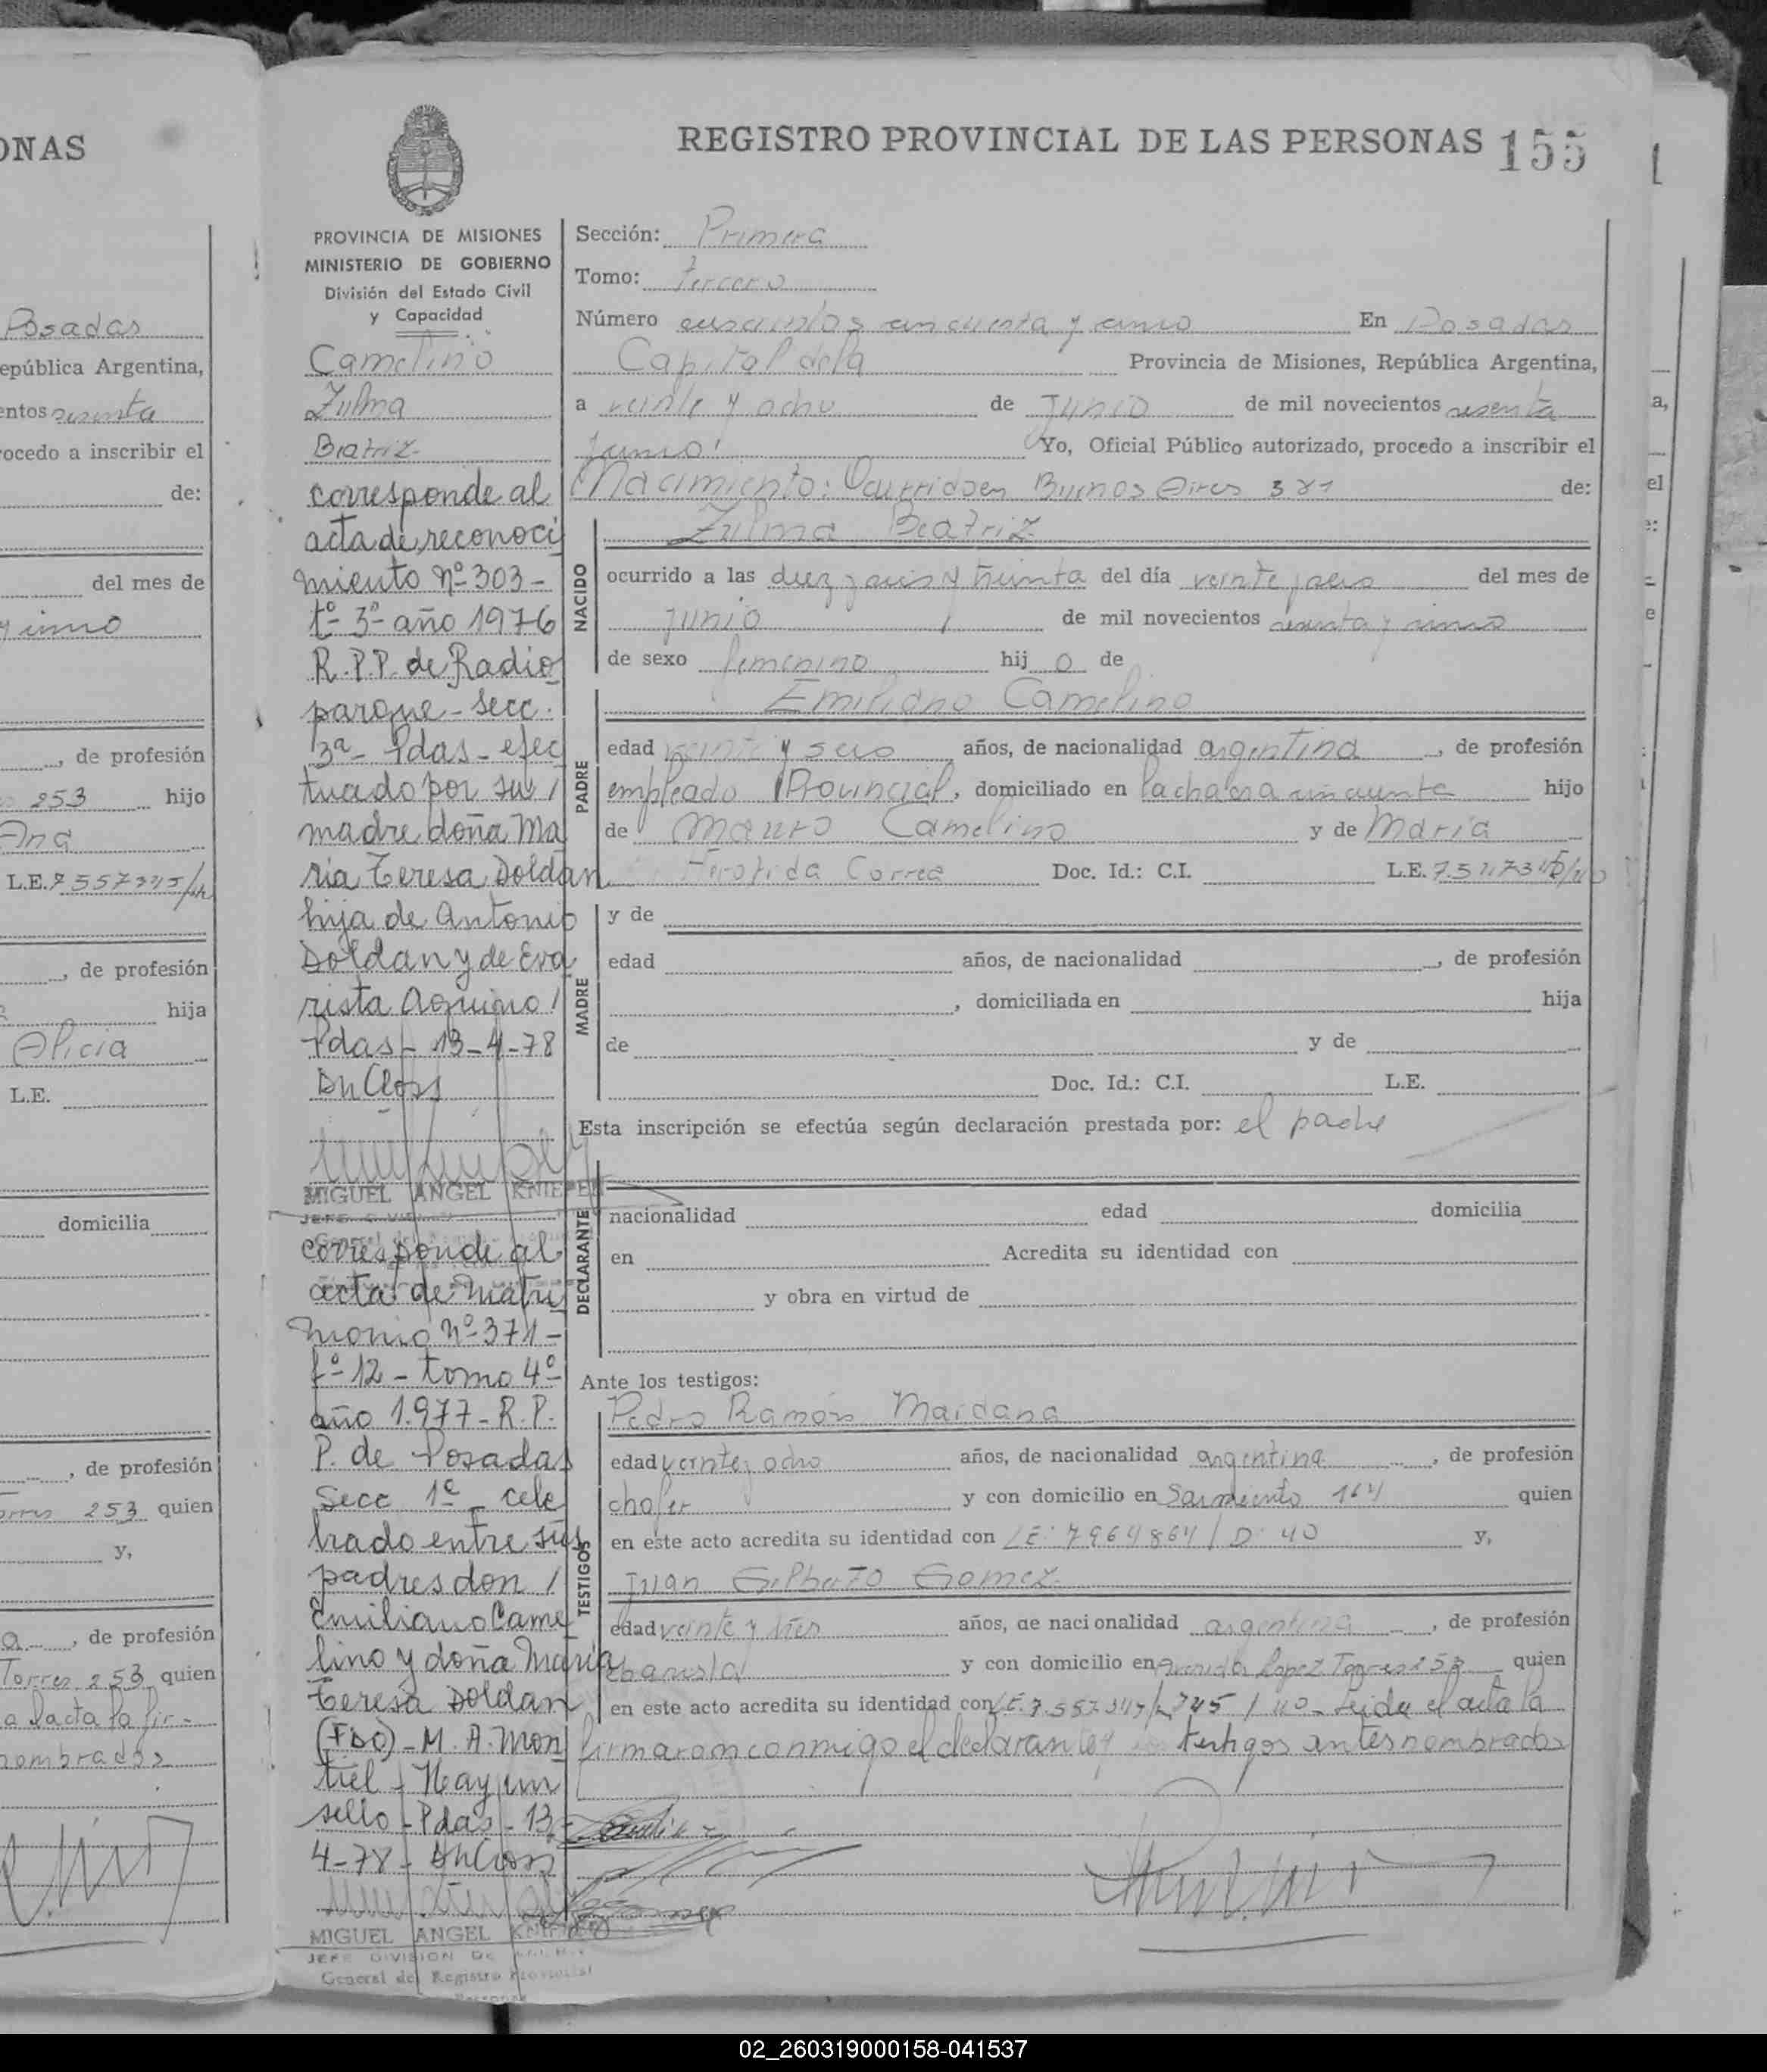 ONAS
Posadas
epública Argentina,
entos
ocedo a inscribir el
de:
del mes de
de profesión
253 hijo
Ana
L.E.
de profesión
hija
Alicia
L.E.
domicilia
de profesión
253 quien
y,
a, de profesión
Torres 253 quien
nombrados
REGISTRO PROVINCIAL DE LAS PERSONAS 155
PROVINCIA DE MISIONES
MINISTERIO DE GOBIERNO
División del Estado Civil
y Capacidad
Camelino
Zulma
Beatriz
corresponde al
acta de reconoci
miento nº 303-
tº 3º año 1976
R.P.P. de Radio
parque - secc.
3ª - Pdas - efec
tuado por su /
madre doña Ma
ria Teresa Doldan
hija de Antonio
Doldan y de Eva
rista Aquino /
Pdas - 13-4-78
MIGUEL ANGEL KNIEPEN
corresponde al
acta de matri
monio nº 371-
fº 12 - tomo 4º
año 1.977 - R.P.
P. de Posadas
Secc 1ª - cele
brado entre sus
padres don /
Emiliano Came
lino y doña Maria
Teresa Doldan
(FDO) - M. A. Mon
tiel - Hay un
sello - Pdas - 13-
4-78
MIGUEL ANGEL
JEFE DIVISION
General del Registro Provincial
Sección: Primera
Tomo: tercero
Número cuscientos cincuenta y cinco En Posadas
Capital de la Provincia de Misiones, República Argentina,
a veinte y ocho de Junio de mil novecientos sesenta
Yo, Oficial Público autorizado, procedo a inscribir el
Nacimiento: Ocurrido en Buenos Aires de:
Zulma Beatriz
NACIDO
ocurrido a las diez y seis y treinta del día veinte del mes de
junio de mil novecientos sesenta y cinco
de sexo femenino hij o de
PADRE
Emiliano Camelino
edad veinte y seis años, de nacionalidad argentina, de profesión
empleado Provincial, domiciliado en la chacra cincuenta hijo
de Mauro Camelino y de Maria
Correa Doc. Id.: C.I. L.E.
MADRE
y de
edad años, de nacionalidad , de profesión
, domiciliada en hija
de y de
Doc. Id.: C.I. L.E.
Esta inscripción se efectúa según declaración prestada por: el padre
DECLARANTE
nacionalidad edad domicilia
en Acredita su identidad con
y obra en virtud de
Ante los testigos:
TESTIGOS
Pedro Ramón Maidana
edad veinte y ocho años, de nacionalidad argentina, de profesión
chofer y con domicilio en Sarmiento 164 quien
en este acto acredita su identidad con LE: 7964864 / D: 40 y,
Juan Gilberto Gomez
edad veinte y tres años, de nacionalidad argentina, de profesión
ebanista y con domicilio en avenida Lopez Torres 253 quien
en este acto acredita su identidad con Leida el acta la
firmaron conmigo el declarante y testigos antes nombrados
02_260319000158-041537